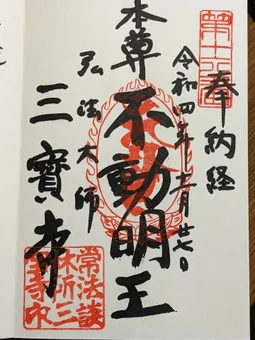 奉納経
令和四年 月廿七日
本尊
不動明王
弘法大師
三寶寺
常法談
林所三
寶寺印